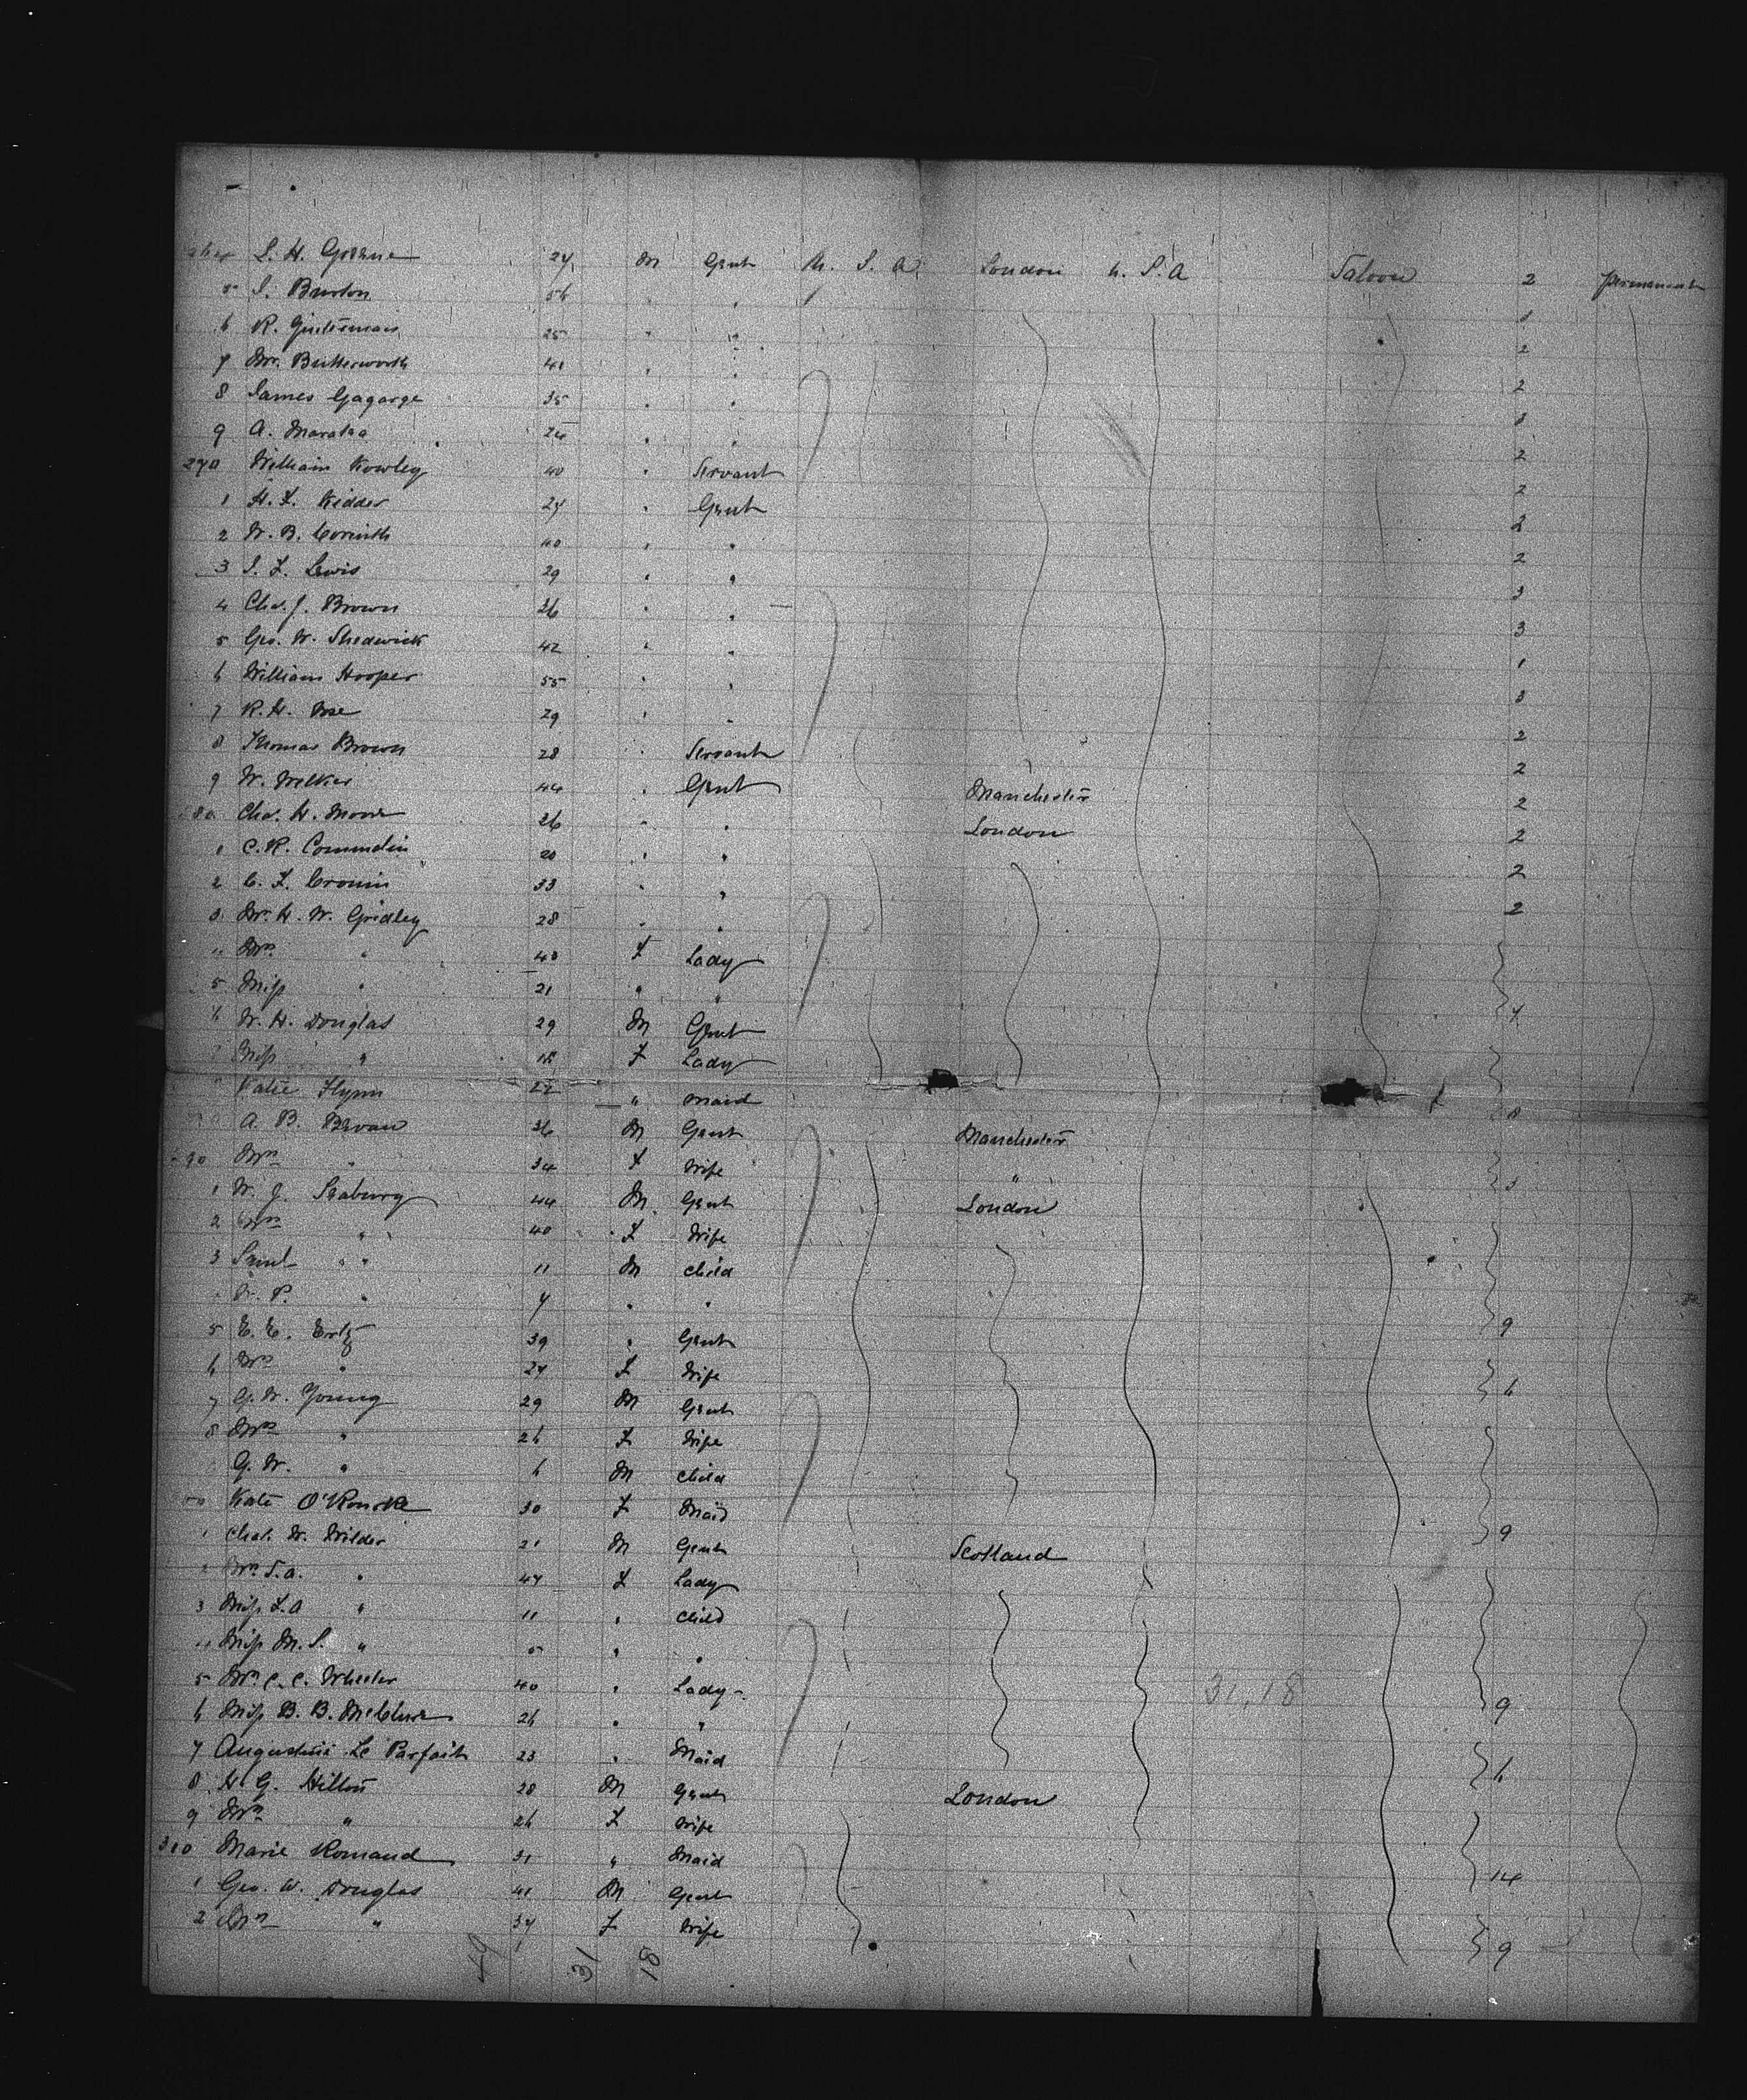 264 S. H. Greene 27 M Gent U. S. A London U. S. A Saloon 2 permanent
5 S. Burton 56 " " 1
6 R. 25 " " 2
7 Mr. Butterworth 41 " " 2
8 James Gagarge 35 " "
9 A. 24 " " 2
270 William Rowley 40 " Servant 2
1 H. F. Kidder 27 " Gent 2
2 W. B. Corinth 40 " " 2
3 S. F. Lewis 29 " " 3
4 Chas. J. Brown 26 " " 3
5 Geo. W. Shedwick 42 " " 1
6 William Hooper 55 " "
7 R. H. 29 " " 2
8 Thomas Brown 28 " Servant 2
9 W. Welker 44 " Gent Manchester 2
80 Chas. H. Morse 26 " " London 2
1 C. R. 20 " " 2
2 C. F. Cronin 33 " " 2
3 Mr. H. W. Gridley 28 " "
4 Mrs " 40 F Lady
5 Miss " 21 " " 7
6 W. H. Douglas 29 M Gent
7 Miss " 15 F Lady
Katie Flynn 22 " Maid 8
A. B. Bevan 36 M Gent Manchester
90 Mrs " 34 F Wife " 5
1 W. J. Seabury 44 M Gent London
2 Mrs " 40 F Wife
3 Saml " " 11 M Child
W. P. " 7 " "  9
5 E. E. Ertz 39 " Gent
6 Mrs " 27 F Wife 6
7 G. W. Young 29 M Gent
8 Mrs " 26 F Wife
G. W. " 6 M Child
Kate O'Rourke 30 F Maid 9
1 Chas. W. Wilder 21 M Gent Scotland
2 Mrs S. A. " 47 F Lady
3 Miss L. A " 11 " Child
4 Miss M. S. " 5 " "
5 Mrs C. C. Wheeler 40 " Lady 31,18 9
6 Miss B. B. McClure 26 " "
7 Augustini Le Parfait 23 " Maid 6
8 H. G. Hilton 28 M Gent London
9 Mrs " 26 F Wife
310 Marie Romand 31 " Maid 14
1 Geo. W. Douglas 41 M Gent
2 Mrs " 37 F Wife 9
49 31 18